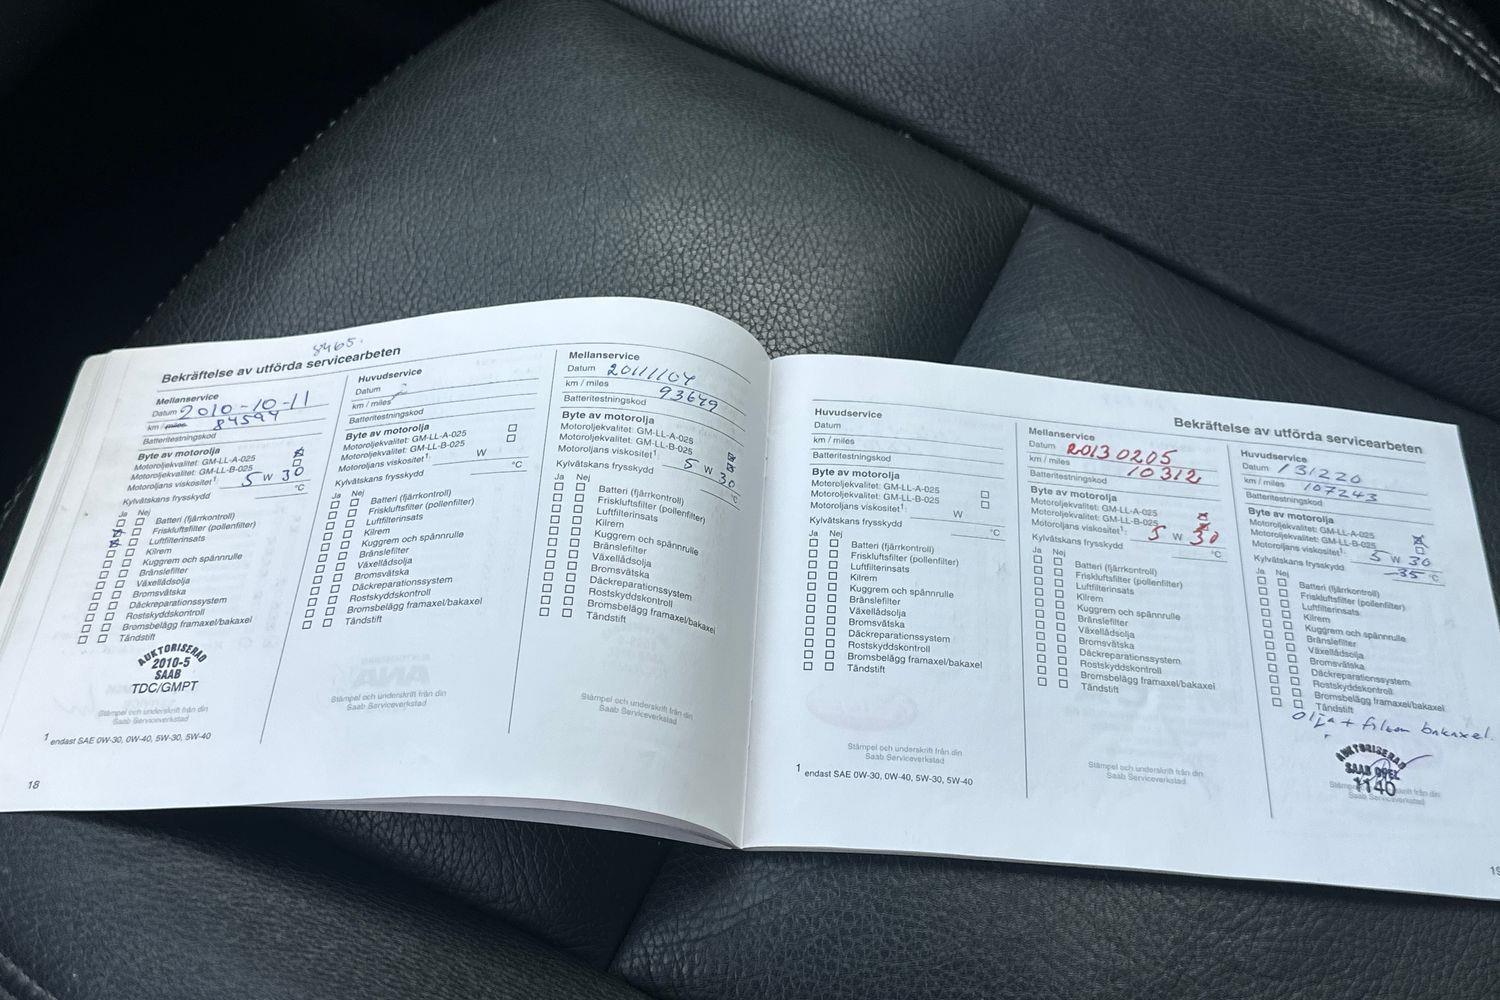 8465.
Bekräftelse av utförda servicearbeten
Mellanservice
Datum 2010-10-11
km / miles 84594
Batteritestningskod
Byte av motorolja
Motoroljekvalitet: GM-LL-A-025
Motoroljekvalitet: GM-LL-B-025
Motoroljans viskositet1: 5 W 30
Kylvätskans frysskydd °C
Ja Nej
Batteri (fjärrkontroll)
Friskluftsfilter (pollenfilter)
Luftfilterinsats
Kilrem
Kuggrem och spännrulle
Bränslefilter
Växellådsolja
Bromsvätska
Däckreparationssystem
Rostskyddskontroll
Bromsbelägg framaxel/bakaxel
Tändstift
AUKTORISERAD
2010-5
SAAB
TDC/GMPT
Stämpel och underskrift från din
Saab Serviceverkstad
1 endast SAE 0W-30, 0W-40, 5W-30, 5W-40
18
Huvudservice
Datum
km / miles
Batteritestningskod
Byte av motorolja
Motoroljekvalitet: GM-LL-A-025
Motoroljekvalitet: GM-LL-B-025
Motoroljans viskositet1: W
Kylvätskans frysskydd °C
Ja Nej
Batteri (fjärrkontroll)
Friskluftsfilter (pollenfilter)
Luftfilterinsats
Kilrem
Kuggrem och spännrulle
Bränslefilter
Växellådsolja
Bromsvätska
Däckreparationssystem
Rostskyddskontroll
Bromsbelägg framaxel/bakaxel
Tändstift
Stämpel och underskrift från din
Saab Serviceverkstad
Mellanservice
Datum 20111104
km / miles 93649
Batteritestningskod
Byte av motorolja
Motoroljekvalitet: GM-LL-A-025
Motoroljekvalitet: GM-LL-B-025
Motoroljans viskositet1: 5 W 30
Kylvätskans frysskydd °C
Ja Nej
Batteri (fjärrkontroll)
Friskluftsfilter (pollenfilter)
Luftfilterinsats
Kilrem
Kuggrem och spännrulle
Bränslefilter
Växellådsolja
Bromsvätska
Däckreparationssystem
Rostskyddskontroll
Bromsbelägg framaxel/bakaxel
Tändstift
Stämpel och underskrift från din
Saab Serviceverkstad
Bekräftelse av utförda servicearbeten
Huvudservice
Datum
km / miles
Batteritestningskod
Byte av motorolja
Motoroljekvalitet: GM-LL-A-025
Motoroljekvalitet: GM-LL-B-025
Motoroljans viskositet1: W
Kylvätskans frysskydd °C
Ja Nej
Batteri (fjärrkontroll)
Friskluftsfilter (pollenfilter)
Luftfilterinsats
Kilrem
Kuggrem och spännrulle
Bränslefilter
Växellådsolja
Bromsvätska
Däckreparationssystem
Rostskyddskontroll
Bromsbelägg framaxel/bakaxel
Tändstift
Stämpel och underskrift från din
Saab Serviceverkstad
1 endast SAE 0W-30, 0W-40, 5W-30, 5W-40
Mellanservice
Datum 20130205
km / miles 10312
Batteritestningskod
Byte av motorolja
Motoroljekvalitet: GM-LL-A-025
Motoroljekvalitet: GM-LL-B-025
Motoroljans viskositet1: 5 W 30
Kylvätskans frysskydd °C
Ja Nej
Batteri (fjärrkontroll)
Friskluftsfilter (pollenfilter)
Luftfilterinsats
Kilrem
Kuggrem och spännrulle
Bränslefilter
Växellådsolja
Bromsvätska
Däckreparationssystem
Rostskyddskontroll
Bromsbelägg framaxel/bakaxel
Tändstift
Stämpel och underskrift från din
Saab Serviceverkstad
Huvudservice
Datum 131220
km / miles 107243
Batteritestningskod
Byte av motorolja
Motoroljekvalitet: GM-LL-A-025
Motoroljekvalitet: GM-LL-B-025
Motoroljans viskositet1: 5 W 30
Kylvätskans frysskydd -35 °C
Ja Nej
Batteri (fjärrkontroll)
Friskluftsfilter (pollenfilter)
Luftfilterinsats
Kilrem
Kuggrem och spännrulle
Bränslefilter
Växellådsolja
Bromsvätska
Däckreparationssystem
Rostskyddskontroll
Bromsbelägg framaxel/bakaxel
Tändstift
olja + filter bakaxel.
AUKTORISERAD
SAAB OPEL
1140
Stämpel och underskrift från din
Saab Serviceverkstad